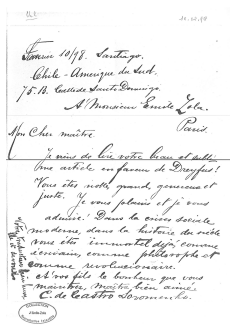 Février 10/98. Santiago.
Chile - Amérique du Sud.
75. B. Calle de Santo Domingo.
A Monsieur Emile Zola.
Paris.
Mon Cher maître
Je viens de lire votre beau et
une article en faveur de Dreyfus!
Vous êtes noble, grand, genereux et
juste. Je vous plains et je vous
admire! Dans la crise sociale
moderne, dans l'histoire du siècle
vous êtes immortel déjà comme
écrivain, comme philosophe et
comme revolucionaire.
le bonheur que vous
maître bien aimé
C. de Castro